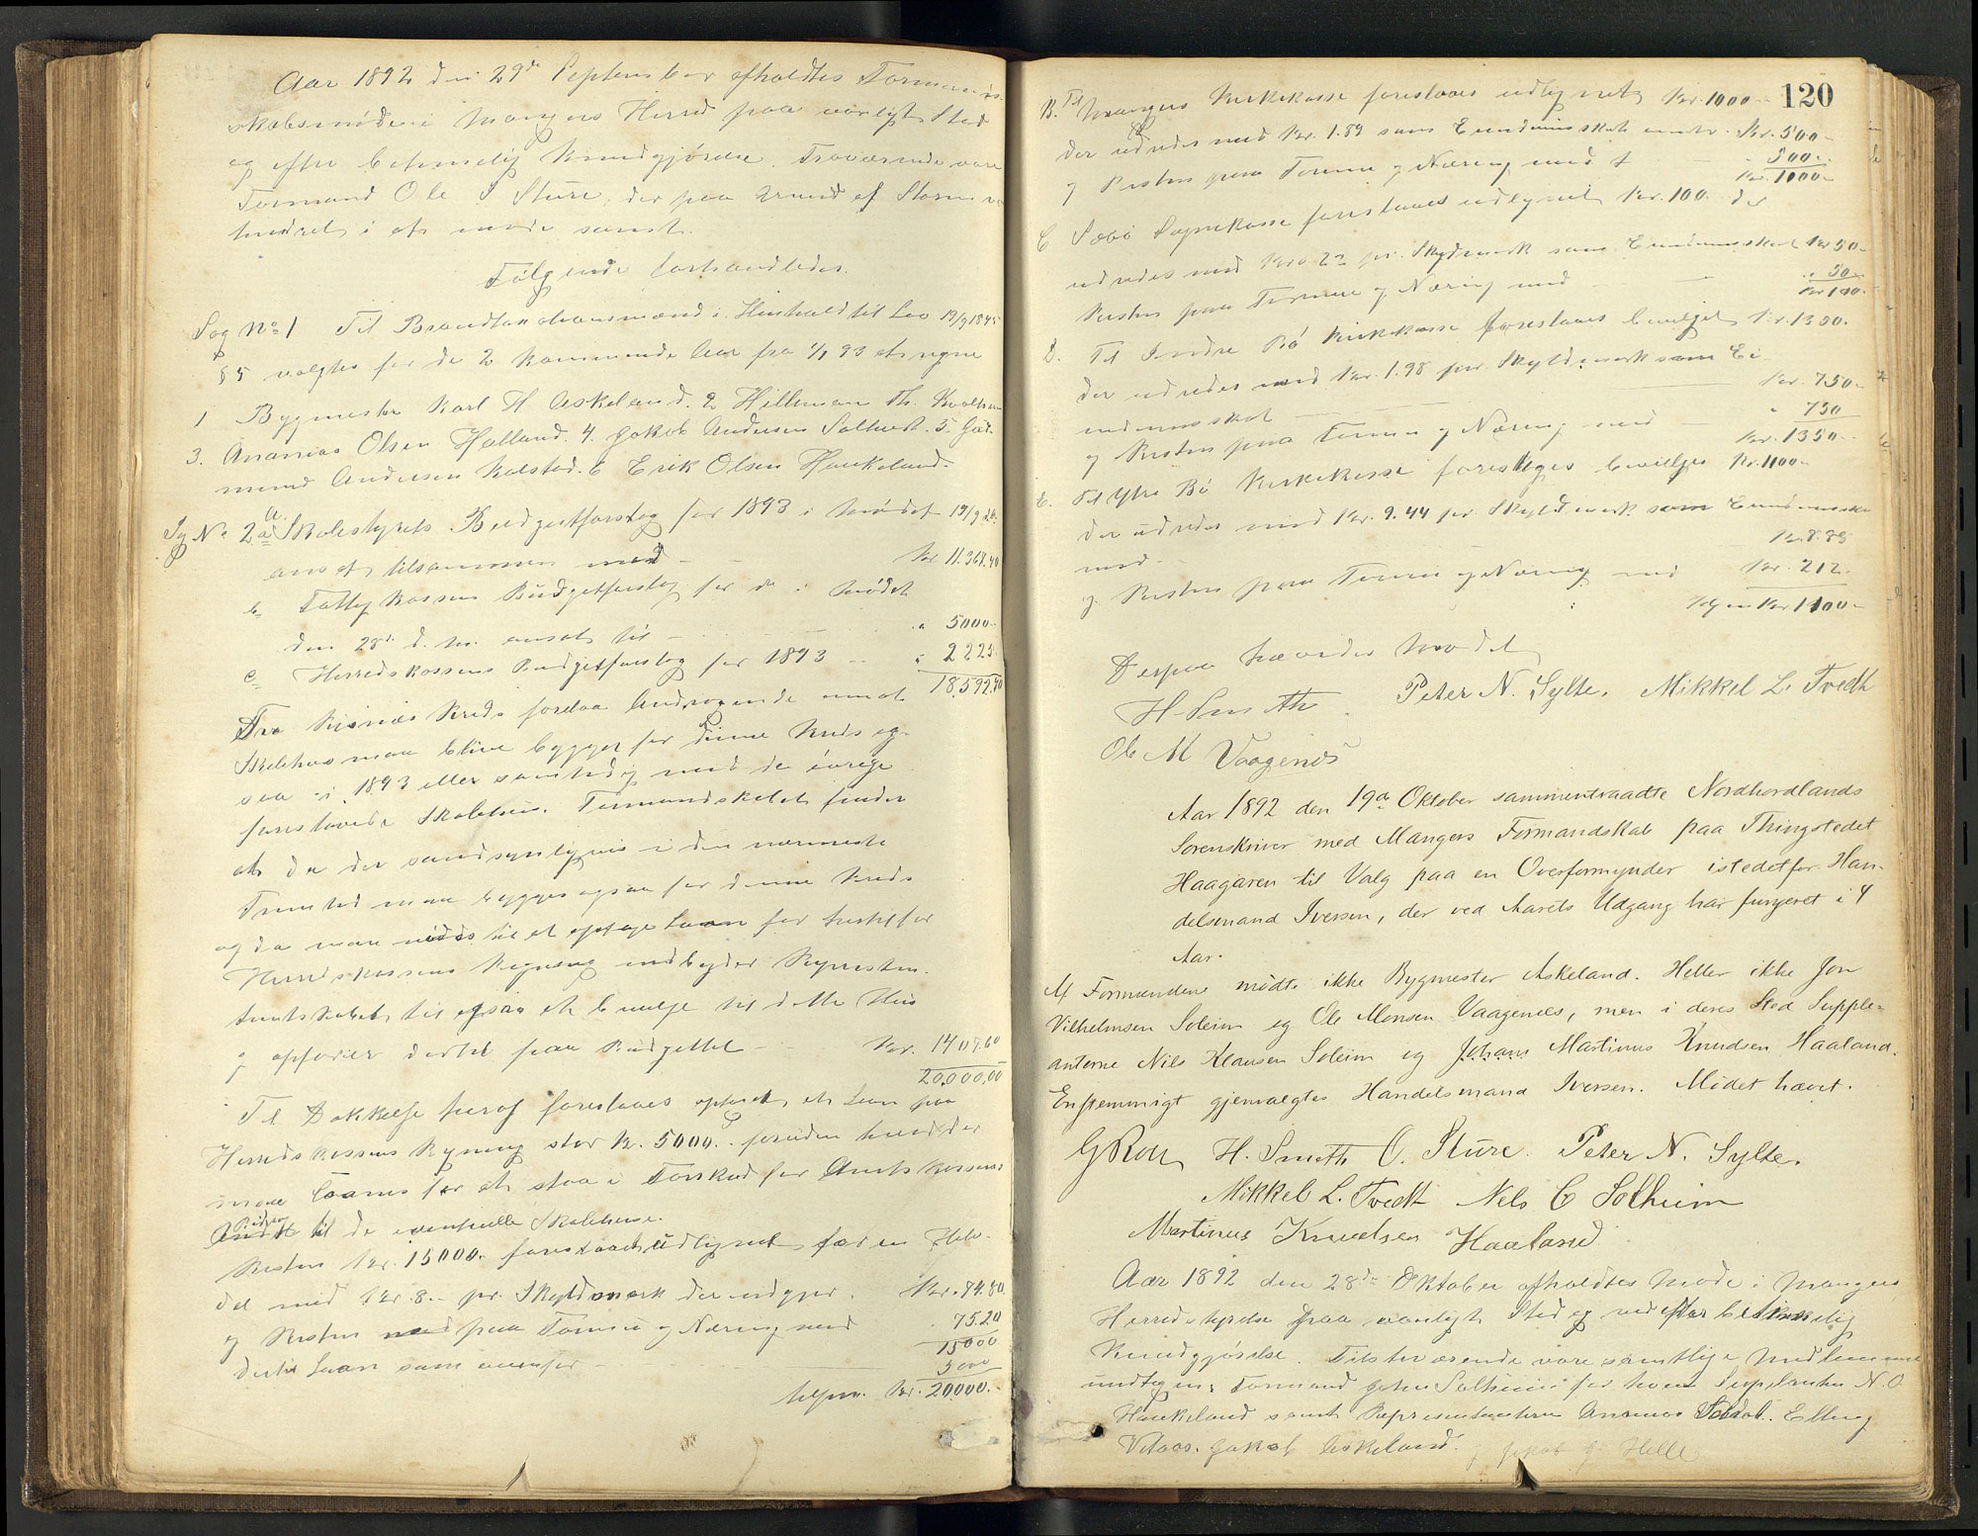 Aar 1892 den 29de September afholdtes Formands-
skabsmøde i Mangers Herred paa vanligt Sted
og efter betimelig Kundgjørelse. Fraværende vare
Formand Ole I Sture, der paa Grund af Storm var
hindret i at møde samt.
Følgende forhandledes.
Sag No 1 Til Brandtaxationsmænd i Henhold til Lov 19/9 1845
§ 5 valgtes for de 2 kommende Aar fra 1/1 93 at regne
1 Bygmester Karl H Askeland. 2 Hillman Th. Kvalheim
3. Ananias Olsen Halland. 4. Jakob Andersen Solheid. 5. Gud-
mund Andersen Kolstad. 6 Erik Olsen Haukeland.
Sag No 2 a Skolestyrets Budgetforslag for 1893 i Mødet 19/9 d.A.
ansat tilsammen med - Kr 11.368.40
b. Fattigkassens Budgetforslag for do i Mødet
den 28de d. M. ansat til - " 5000-
c. Herredskassens Budgetforslag for 1893 - " 2225
18,592.40
Fra Risnæs Kreds forelaa Andragende om at
Skolehus maa blive bygget for denne Kreds og-
saa i 1893 eller samtidig med de øvrige
foreslaaede Skolehuse. Formandskabet finder
at da der sandsynligvis i den nærmeste
Fremtid maa bygges ogsaa for denne Kreds
og da man nødes til at optage Laan for
Herredskassens Regning indbyder Represen-
tantskabet til ogsaa at bevilge til dette Hus
og opfører dertil paa Budgettet - Kr. 1407.60
20,000,00
Til Dækkelse heraf foreslaaes optaget et Laan paa
Herredskassens Regning stor Kr. 5000.- foruden hvad der
maa laanes for at staa i Forskud for Amtskassens
Bidrag til de eventuelle Skolehuse.
Resten Kr. 15000. foreslaaes udlignet for en Halv-
del med Kr 8.- pr. Skyldmark der udgjør. Kr. 74.80
og Resten med paa Formue og Næring med 75.20
15000
dertil Laan som ovenfor - 5000
tilsam. Kr. 20000.-
120
B. Til Mangers Kirkekasse foreslaaes udlignet Kr. 1000-
der udredes med Kr. 1.89 som Eiendomsskat Kr. 500-
og Resten paa Formue og Næring med 500-
Kr. 1000-
C Sæbø Sognekasse foreslaaes udlignet Kr. 100. der
udredes med Kr. pr. Skyldmark som Eiendomsskat Kr 50-
Resten paa Formue og Næring med - " 50-
Kr 100.
D. Til Indre Bø Kirkekasse foreslaaes bevilget Kr. 1350.
der udredes med Kr. 1.98 pr. Skyldmark som Ei-
endomsskat Kr. 750-
og Resten paa Formue og Næring med - " 750
Kr. 1350-
E. Til Ytre Bø Kirkekasse foreslaaes bevilget Kr. 1100-
der udredes med Kr. 9.44 pr Skyldmark som Eiendomsskat
med - Kr. 8.88
og Resten paa Formue og Næring med Kr. 212.
Kr 1100-
Derpaa hævedes Mødet
H. Smith. Peter N. Sylte. Mikkel L. Tvedt
Ole M Vaagenes
Aar 1892 den 19de Oktober sammentraadte Nordhordlands
Sorenskriver med Mangers Formandskab paa Thingstedet
Haagaren til Valg paa en Overformynder istedetfor Han-
delsmand Iversen, der ved Aarets Udgang har fungeret i 4
Aar.
Af Formændene mødte ikke Bygmester Askeland. Heller ikke Jon
Vilhelmsen Soleim og Ole Monsen Vaagenæs, men i deres Sted Supple-
anterne Nils Klausen Soleim og Johans Martinus Knudsen Haaland.
Enstemmigt gjenvalgtes Handelsmand Iversen. Mødet hævet.
G Roll H. Smith O. Sture. Peter N. Sylte.
Mikkel L. Tvedt Nels C Solheim
Martinus Knudsen Haaland
Aar 1892 den 28de Oktober afholdtes Møde i Mangers
Herredstyrelse paa vanligt Sted og ved efter betimelig
Kundgjørelse. Tilstedeværende vare samtlige Medlemmer
undtagen Formand John Solheim for hvem Suppleanten N. O
Haukeland samt Representanterne Ananias Solid. Elling
Vetaas. Jakob Askeland. og Jakob J Helle